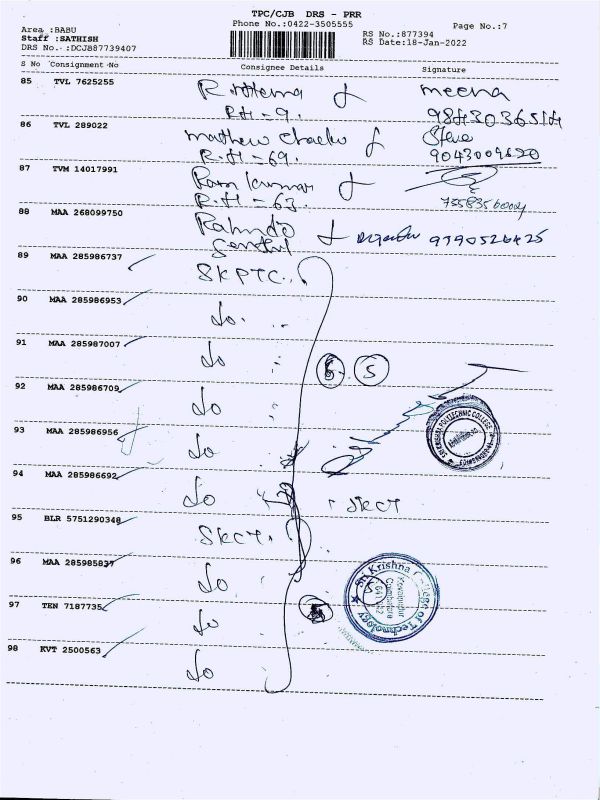 TPC/CJB DRS - PRR
Phone No.:0422-3505555
Page No.:7
Area :BABU
Staff :SATHISH
DRS No.:DCJB87739407
RS No.:877394
RS Date:18-Jan-2022
S No Consignment No Consignee Details Signature
85 TVL 7625255 meena
R.H=9. 9843036514
86 TVL 289022 mathew
R.H=69. 9043009620
87 TVM 14017991 Ram kumar
R.H=63.
88 MAA 268099750 9790526425
89 MAA 285986737 SKPTC
90 MAA 285986953 do
91 MAA 285987007 do
5
92 MAA 285986709 do
93 MAA 285986956 do
SRI KRISHNA POLYTECHNIC COLLEGE
94 MAA 285986692 do SKCT
95 BLR 5751290348 SKCT
96 MAA 285985837 do
Sri Krishna College of Technology
Kovaipudur
Coimbatore
641 042
97 TEN 7187735 do
98 KVT 2500563 do